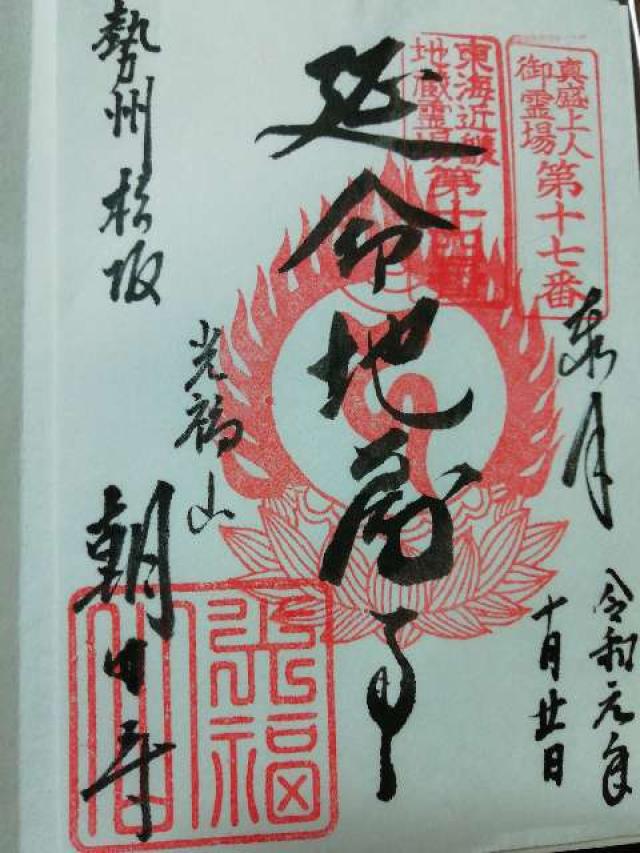 真盛上人
御霊場
第十七番
東海近畿
地蔵霊場
第十四番
令和元年
十月廿日
延命地蔵尊
勢州松阪
光福山
朝田寺
光福